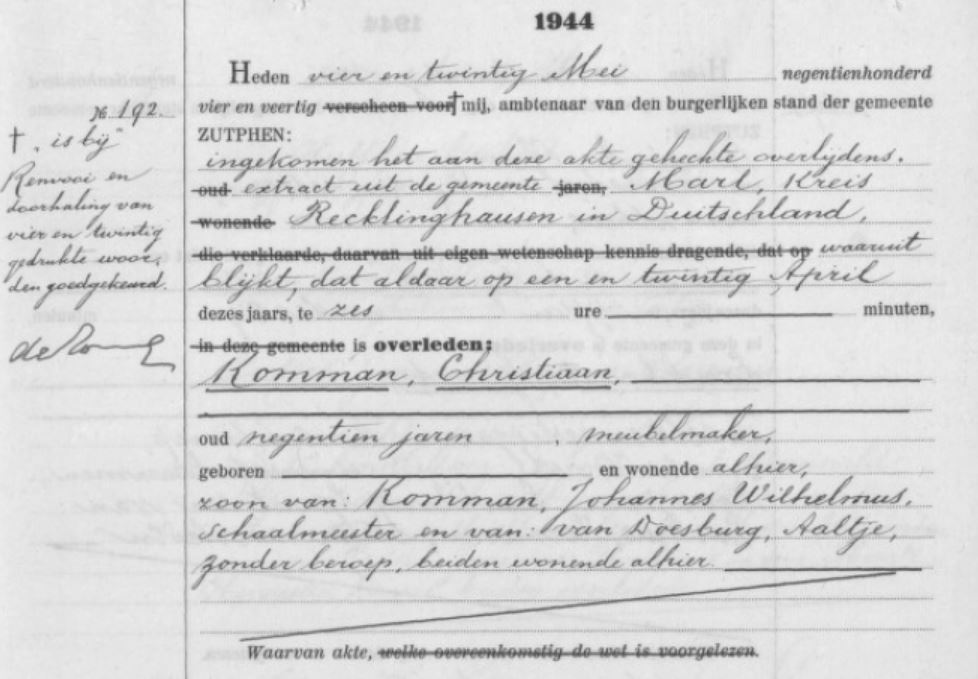 1944
Heden vier en twintig Mei negentienhonderd
vier en veertig verscheen voor † mij, ambtenaar van den burgerlijken stand der gemeente
ZUTPHEN:
ingekomen het aan deze akte gehechte overlijdens.
oud extract uit de gemeente jaren, Marl, Kreis
wonende Recklinghausen in Duitschland,
die verklaarde, daarvan uit eigen wetenschap kennis dragende, dat op waaruit
blijkt, dat aldaar op een en twintig April
dezes jaars, te zes ure minuten,
in deze gemeente is overleden:
Komman, Christiaan,
oud negentien jaren, meubelmaker,
geboren en wonende alhier,
zoon van: Komman, Johannes Wilhelmus,
schaalmeester en van: van Doesburg, Aaltje,
zonder beroep, beiden wonende alhier.
Waarvan akte, welke overeenkomstig de wet is voorgelezen.
№ 192.
† „is bij"
Renvooi en
doorhaling van
vier en twintig
gedrukte woor-
den goedgekeurd.